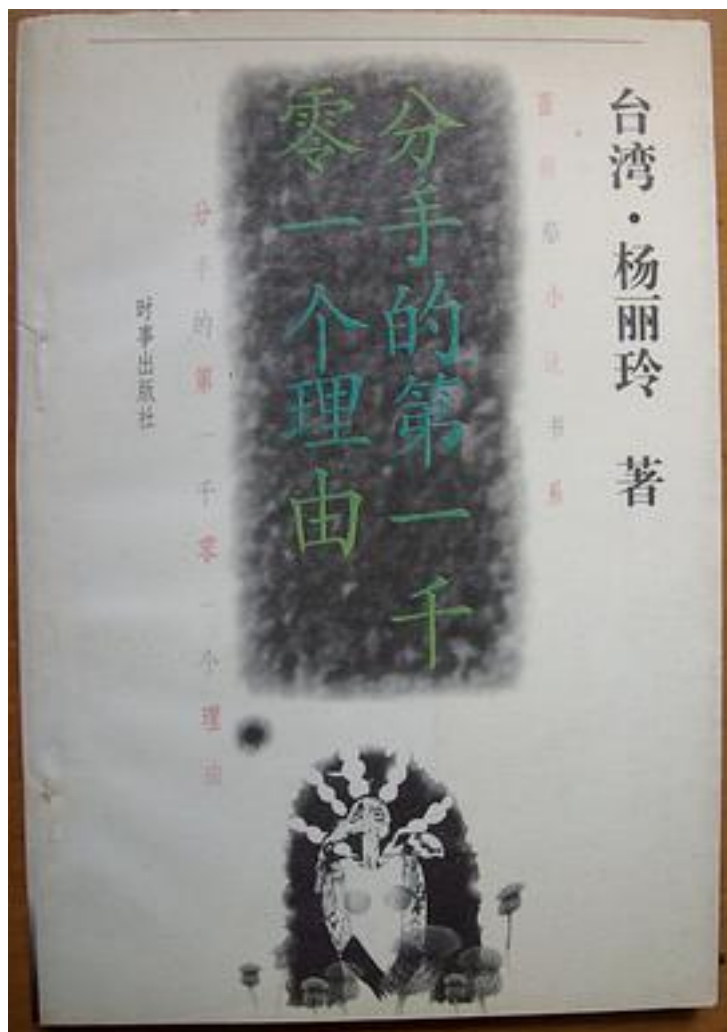 台湾·杨丽玲 著
小说书系
分手的第一千
零一个理由
分手的第一千零一个理由
时事出版社